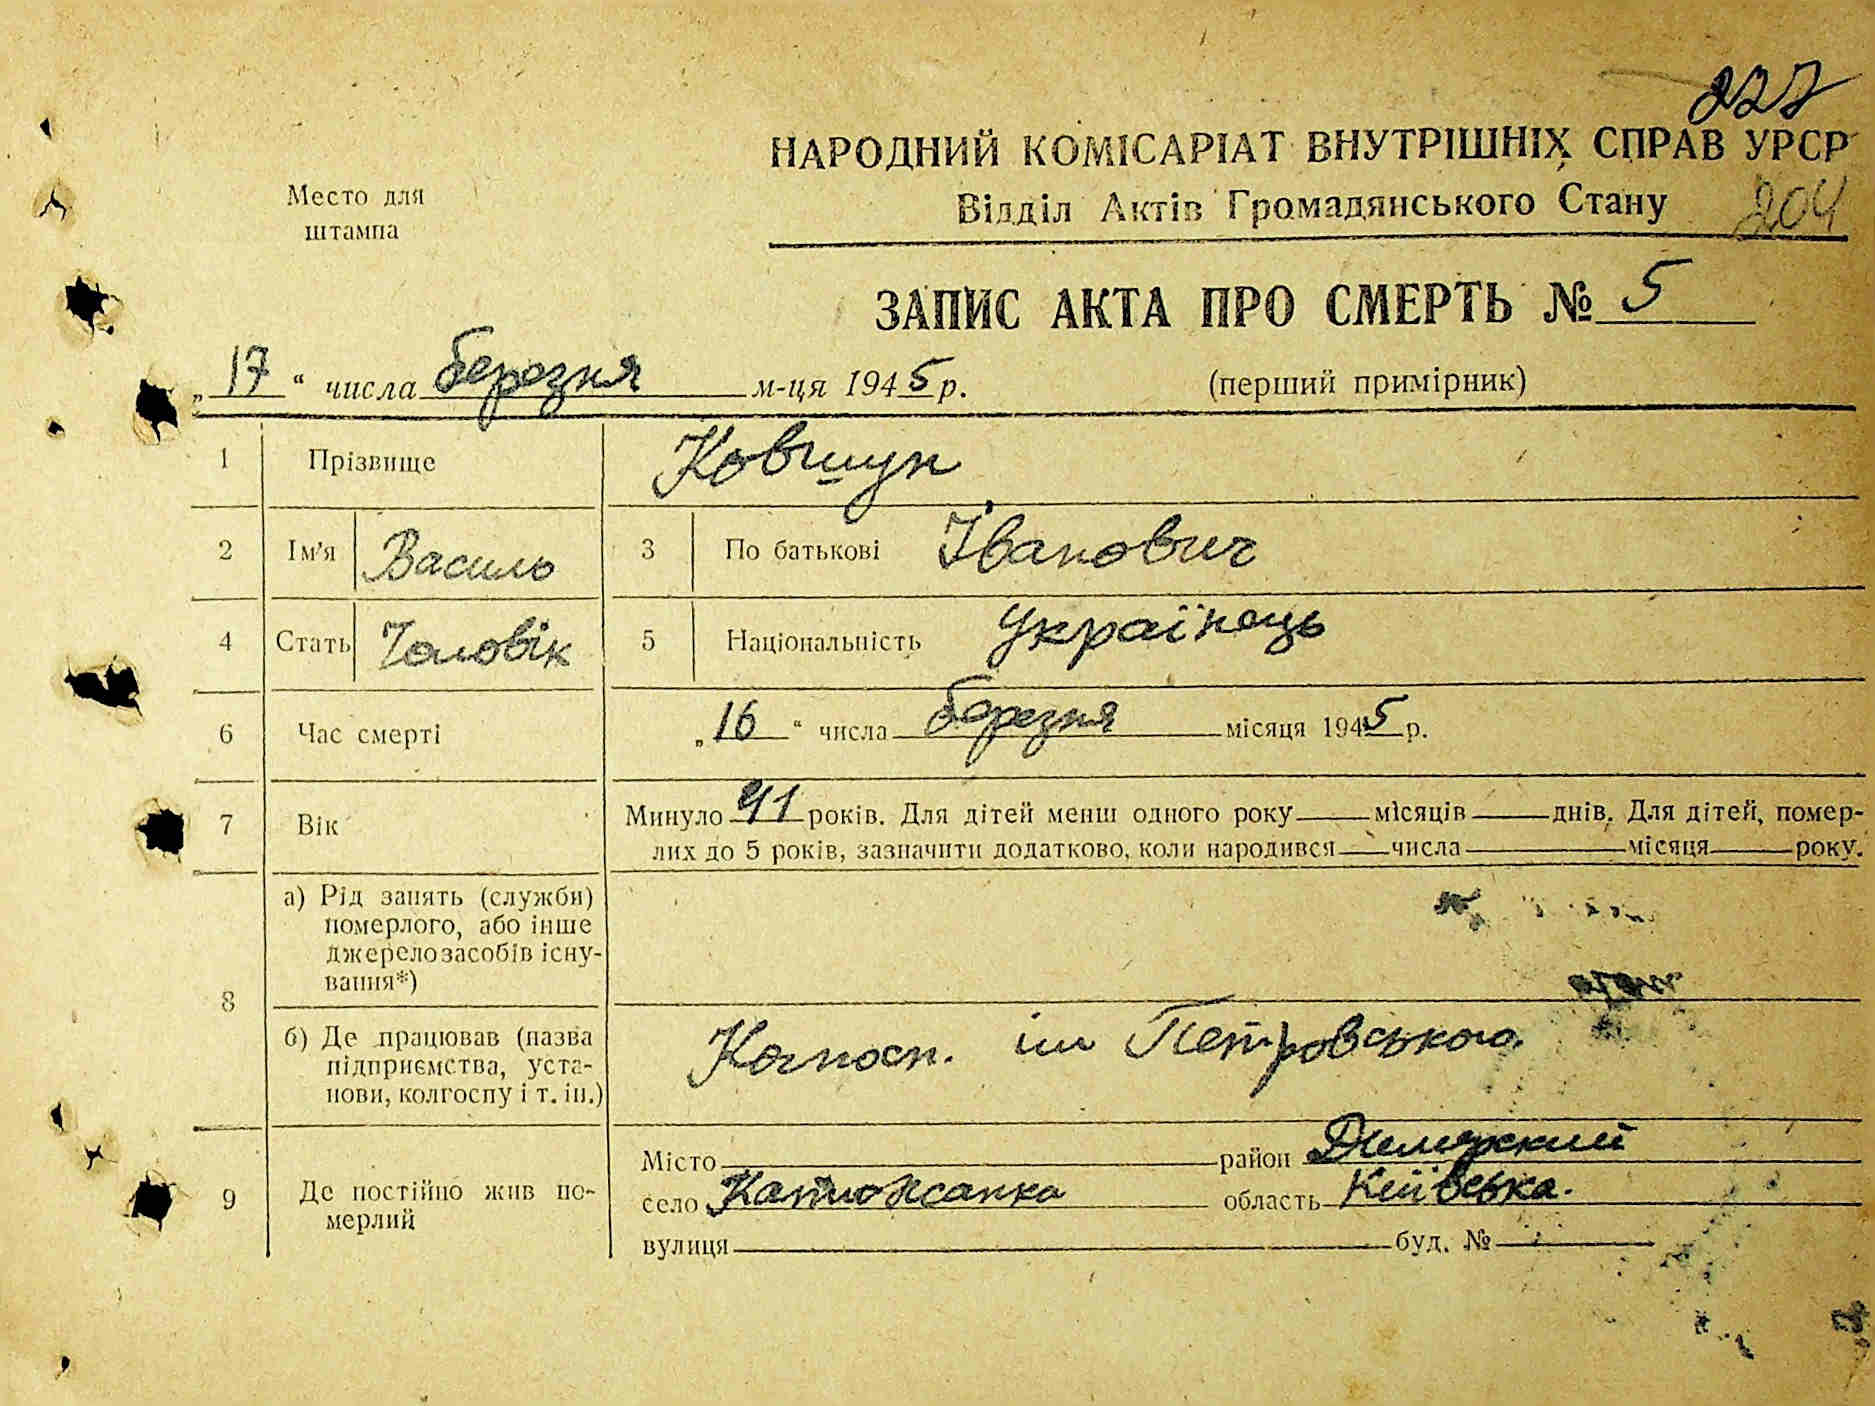 227
НАРОДНИЙ КОМІСАРІАТ ВНУТРІШНІХ СПРАВ УРСР
Место для
штампа
Відділ Актів Громадянського Стану
204
ЗАПИС АКТА ПРО СМЕРТЬ № 5
„17“ числа березня м-ця 1945 р.
(перший примірник)
1 Прізвище Ковшук
2 Ім’я Василь 3 По батькові Іванович
4 Стать Чоловік 5 Національність Українець
6 Час смерті „16“ числа березня місяця 1945 р.
7 Вік Минуло 41 років. Для дітей менш одного року місяців днів. Для дітей, помер-
лих до 5 років, зазначити додатково, коли народився числа місяця року.
8 а) Рід занять (служби)
померлого, або інше
джерело засобів існу-
вання*)
б) Де працював (назва
підприємства, уста-
нови, колгоспу і т. ін.)
Колгосп. ім Петровського
9 Де постійно жив по-
мерлий
Місто район Димерский
село Катюжанка область Київська.
вулиця буд. №